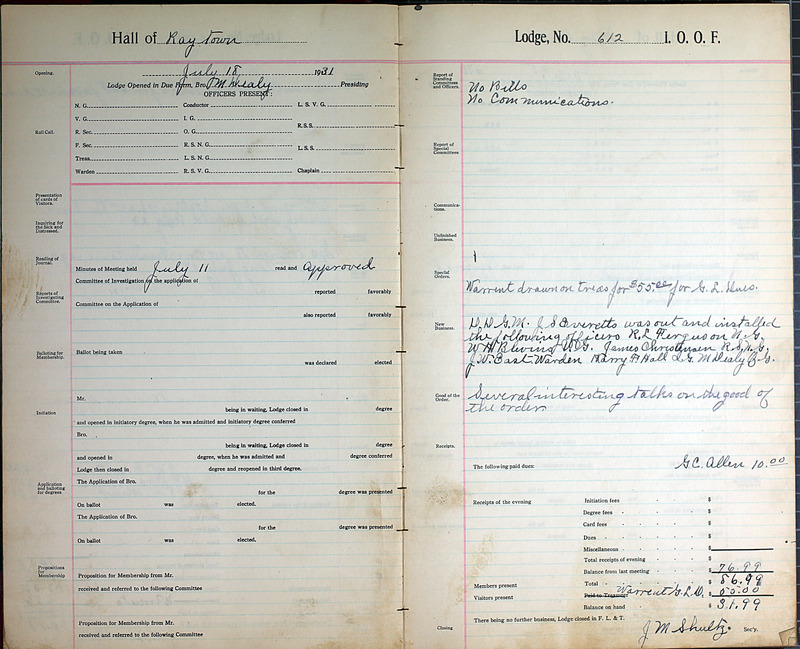 Hall of Raytown
July 18 1931
Opening.
Lodge Opened in Due Form, Bro. M Healy Presiding
OFFICERS PRESENT:
N. G. Conductor L. S. V. G.
V. G. I. G.
R.S.S.
Roll Call.
R. Sec. O. G.
F. Sec. R. S. N. G.
L.S.S.
Treas. L. S. N. G.
Warden R. S. V. G. Chaplain
Presentation of cards of Visitors.
Inquiring for the Sick and Distressed.
Reading of Journal.
Minutes of Meeting held July 11 read and approved
Committee of Investigation on the application of
Reports of Investigating Committee.
reported favorably
Committee on the Application of
also reported favorably
Balloting for Membership.
Ballot being taken
was declared elected
Mr.
being in waiting, Lodge closed in degree
Initiation
and opened in initiatory degree, when he was admitted and initiatory degree conferred
Bro.
being in waiting, Lodge closed in degree
and opened in degree, when he was admitted and degree conferred
Lodge then closed in degree and reopened in third degree.
Application and balloting for degrees
The Application of Bro.
for the degree was presented
On ballot was elected.
The Application of Bro.
for the degree was presented
On ballot was elected.
Propositions for Membership
Proposition for Membership from Mr.
received and referred to the following Committee
Proposition for Membership from Mr.
received and referred to the following Committee
Lodge, No. 612 I. O. O. F.
Report of Standing Committees and Officers.
No Bills
No Communications.
Report of Special Committees
Communications.
Unfinished Business.
Special Orders.
Warrent drawn on treas for $55.00 for G. L. Dues.
New Business.
D. D G. M. J S Everetts was out and installed
the following officers R. L Ferguson N. G.
W H Blevins V. G. James Christensen R. S. N. G.
J. W. East Warden Harry A Hall I. G. M Healy
Good of the Order.
Several interesting talks on the good of
the order
Receipts.
The following paid dues: G C. Allen 10.00
Receipts of the evening Initiation fees $
Degree fees $
Card fees $
Dues $
Miscellaneous $
Total receipts of evening $
Balance from last meeting $ 76.99
Members present Total $ 86.99
Visitors present Paid to Treasurer Warrent G. L. D. $ 55.00
Balance on hand $ 31.99
There being no further business, Lodge closed in F. L. & T.
Closing J M Shultz Sec'y.